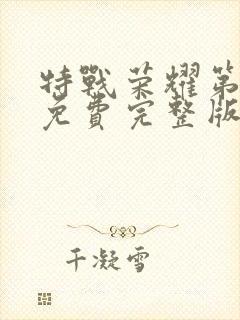 特戰荣耀第
免費完整版
千凝雪